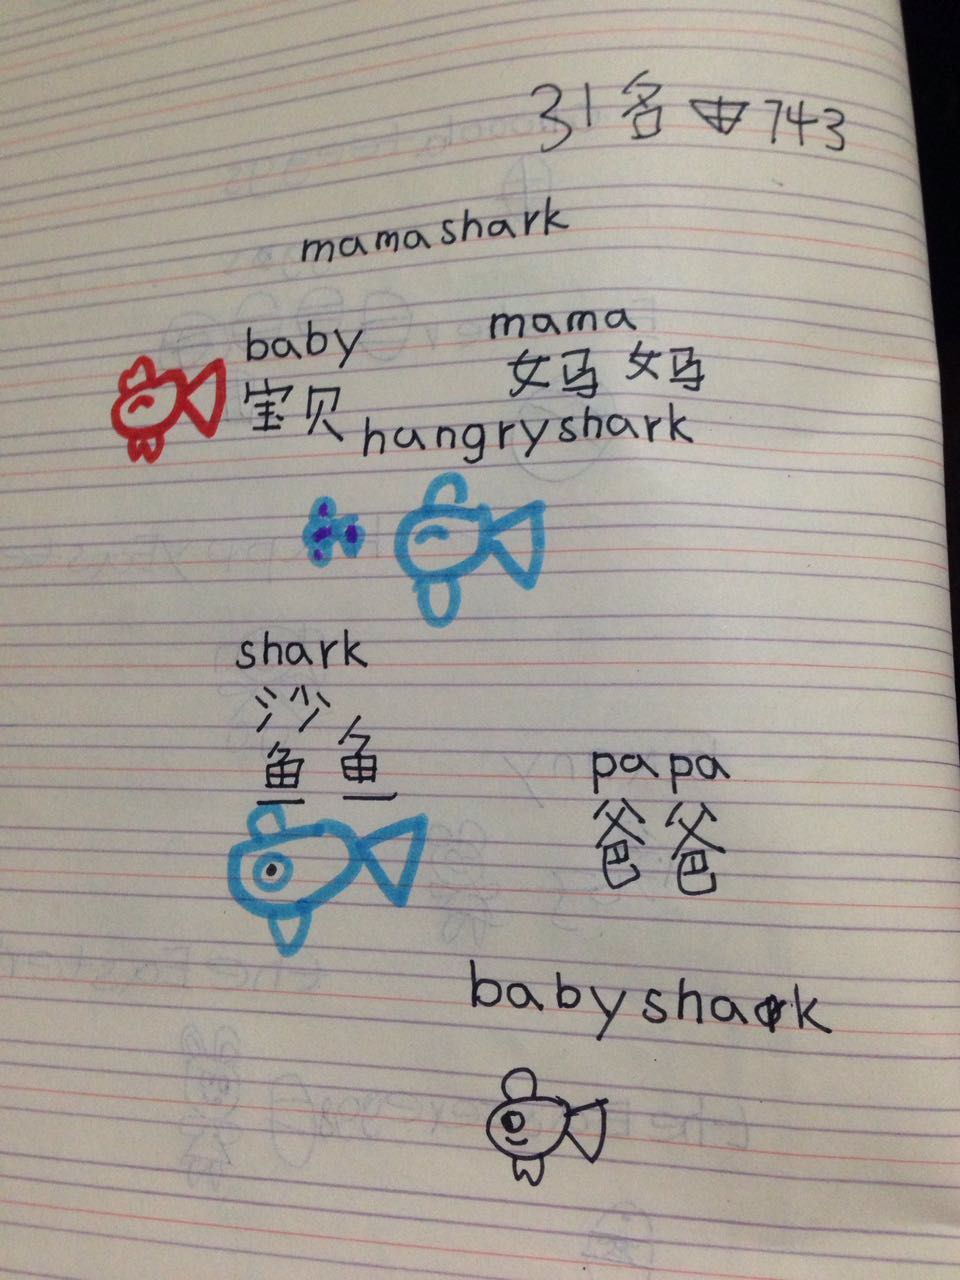 31名 743
mama shark
baby
mama
宝贝
妈妈
hangry shark
shark
沙
鱼鱼
papa
爸爸
baby shark